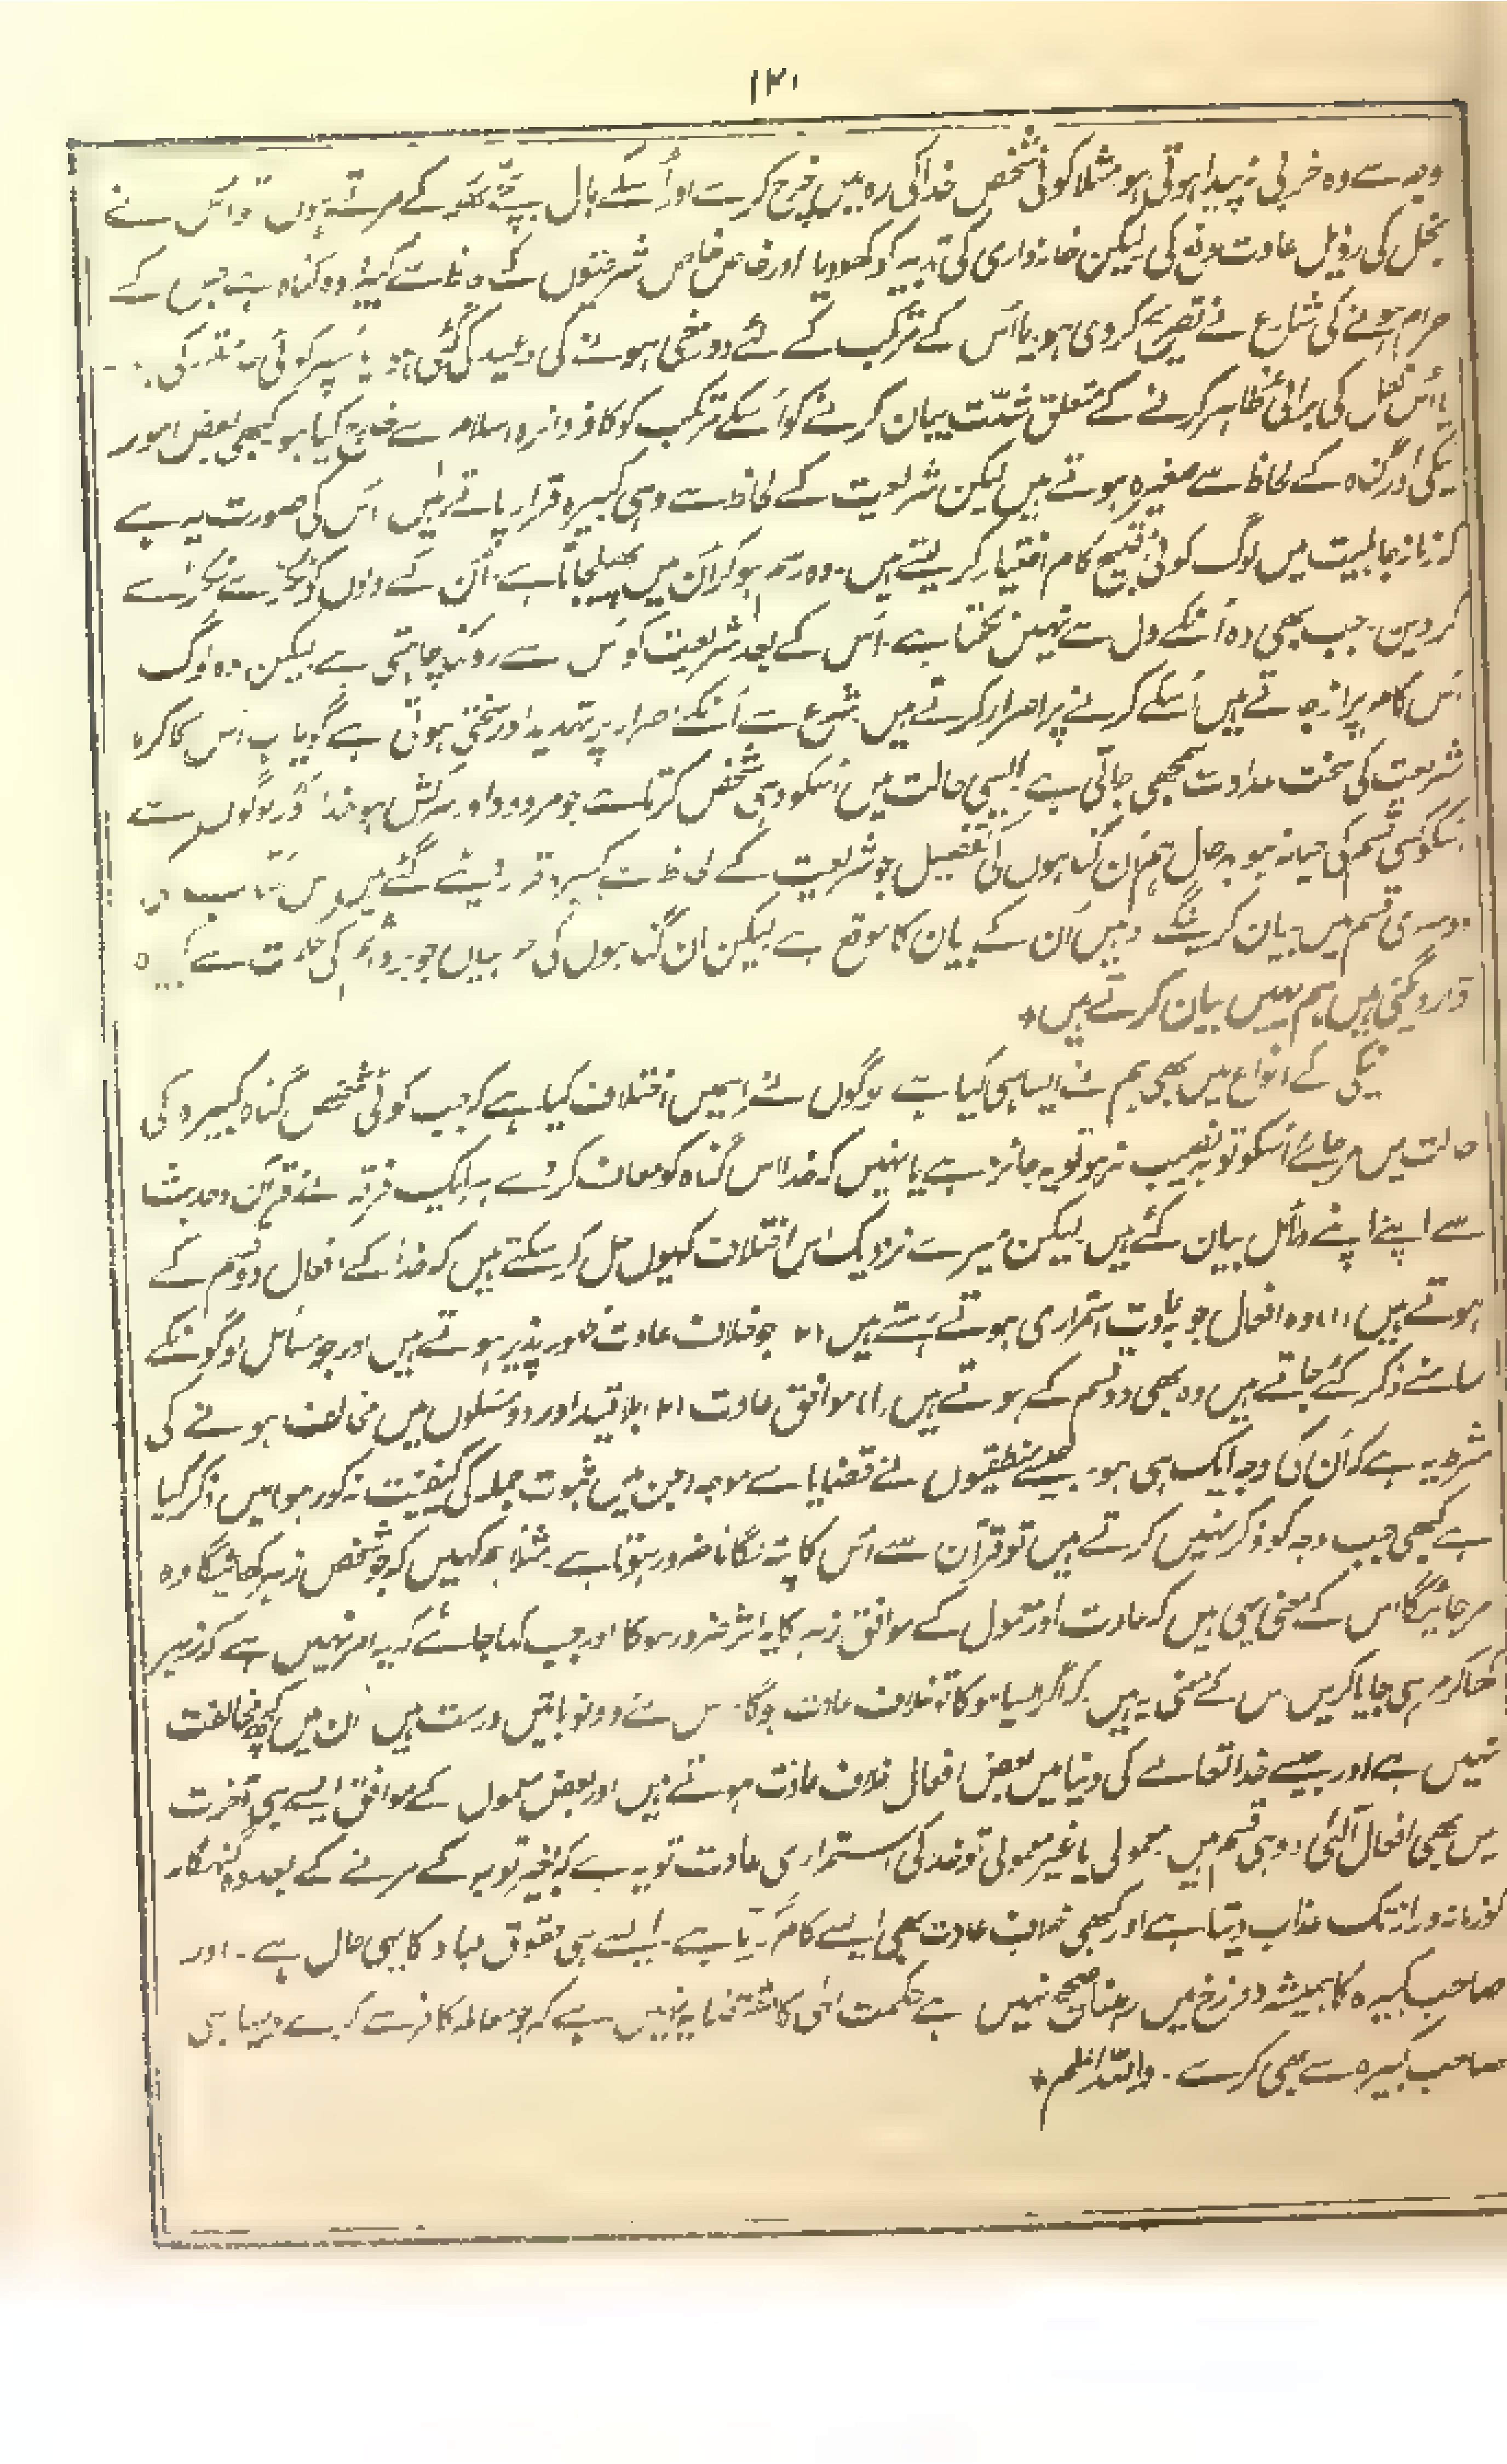 ۱۲۱
وجہ سے وہ خرابی نہ پیدا ہوتی ہو مثلا کوئی شخص خدا کی رہ میں خرچ کرے اور اُسکے بال بچے بھوکے مرتے ہوں تو اُس نے
بخل کی رذیل عادت دفع کی لیکن خانہ داری کی تدبیر کو کھودیا اور خاص خاص شریعتوں کے لحاظ سے کبیرہ وہ گناہ ہے جس کے
حرام ہونے کی شارع نے تصریح کردی ہو یا اُس کے مرتکب کے لئے دوزخی ہونے کی وعید کی گئی ہو یا اُسپر کوئی حد مقرر کی
یا اُس فعل کی برائی ظاہر کرنے کے متعلق شدّت بیان کرنے کو اُسکے مرتکب کو کافر و دائرہ اسلام سے خارج کیا ہو کبھی بعض امور
نیکی اور گناہ کے لحاظ سے صغیرہ ہوتے ہیں لیکن شریعت کے لحاظ سے وہی کبیرہ قرار پاتے ہیں اُس کی صورت یہ ہے
کہ زمانہ جاہلیت میں لوگ کوئی قبیح کام اختیار کرلیتے ہیں۔ وہ رسم ہوکر اُن میں پھیل جاتا ہے۔ اُن کے دلوں کو ٹکڑے ٹکڑے
کردین۔ جب بھی وہ اُنکے دل سے نہیں نکلتا ہے۔ اُس کے بعد شریعت اُس سے روکنا چاہتی ہے لیکن وہ لوگ
اُس کام پر اڑ جاتے ہیں اُسکے کرنے پر اصرار کرتے ہیں شرع سے اُنکے اصرار پر تہدید اور سختی ہوتی ہے گویا اب اُس کا کرنا
شریعت کی سخت عداوت سمجھی جاتی ہے ایسی حالت میں اُسکو وہی شخص کرتا ہے جو مردود اور سرکش ہو خدا اور لوگوں سے
اُسکو کسی قسم کی حیا نہ ہو بہر حال ہم اُن گناہوں کی تفصیل جو شریعت کے لحاظ سے کبیرہ قرار دیئے گئے ہیں اس کتاب کی
دوسری قسم میں بیان کرینگے وہیں اُن کے بیان کا موقع ہے لیکن ان گناہوں کی برائیاں جو بر و اثم کی حکمت سے کبیرہ
قرار دیگئی ہیں ہم یہیں بیان کرتے ہیں ٭
نیکی کے انواع میں بھی ہم نے ایسا ہی کیا ہے لوگوں نے اسمیں اختلاف کیا ہے کہ جب کوئی شخص گناہ کبیرہ کی
حالت میں مرجائے اُسکو توبہ نصیب نہ ہو تو یہ جائز ہے یا نہیں کہ خدا اس گناہ کو معاف کردے ہر ایک فرقہ نے قرآن و حدیث
سے اپنے اپنے دلائل بیان کئے ہیں لیکن میرے نزدیک اس اختلاف کو یوں حل کرسکتے ہیں کہ خدا کے افعال دو قسم کے
ہوتے ہیں (۱) وہ افعال جو بہ عادت استمراری ہوتے رہتے ہیں (۲) جو خلاف عادت ظہور پذیر ہوتے ہیں اور جو مسائل لوگونکے
سامنے ذکر کئے جاتے ہیں وہ بھی دو قسم کے ہوتے ہیں (۱) موافق عادت (۲) بلا قید اور دو مسئلوں میں مخالف ہونے کی
شرط یہ ہے کہ اُن کی وجہ ایک ہی ہو۔ جیسے منطقیوں نے قضایائے موجہہ جن میں ثبوت جملہ کی کیفیت مذکور ہو اسمیں ذکر کیا
ہے کبھی جب وجہ کو ذکر نہیں کرتے ہیں تو قرآن سے اُس کا پتہ لگانا ضرور ہوتا ہے۔ مثلا جو کہیں کہ جو شخص زہر کھائیگا وہ
مرجائیگا اس کے معنی یہی ہیں کہ عادت اور معمول کے موافق زہر کا یہ اثر ضرور ہوگا اور جب کہا جائے کہ یہ امر نہیں ہے کہ زہر
کھا کر مر ہی جایا کریں اس کے معنی یہ ہیں کہ اگر ایسا ہوگا تو خلاف عادت ہوگا۔ اس لئے دونو باتیں درست ہیں ان میں کچھ مخالفت
نہیں ہے اور جیسے خدا تعالےٰ کی دنیا میں بعض افعال خلاف عادت ہوتے ہیں اور بعض معمول کے موافق ایسے ہی آخرت
میں بھی افعال آلٰہی دو ہی قسم ہیں معمولی یا غیر معمولی تو خدا کی استمراری عادت تو یہ ہے کہ بغیر توبہ کے مرنے کے بعد وہ گنہگار
کو زمانہ دراز تک عذاب دیتا ہے اور کبھی خلاف عادت بھی ایسے کام کرتا ہے۔ ایسے ہی حقوق عباد کا یہی حال ہے۔ اور
صاحب کبیرہ کا ہمیشہ دوزخ میں رہنا صحیح نہیں ہے حکمت الٰہی کا مقتضا یہ نہیں ہے کہ جو معاملہ کافر سے کرے ویسا ہی
صاحب کبیرہ سے بھی کرے۔ واللہ اعلم ٭